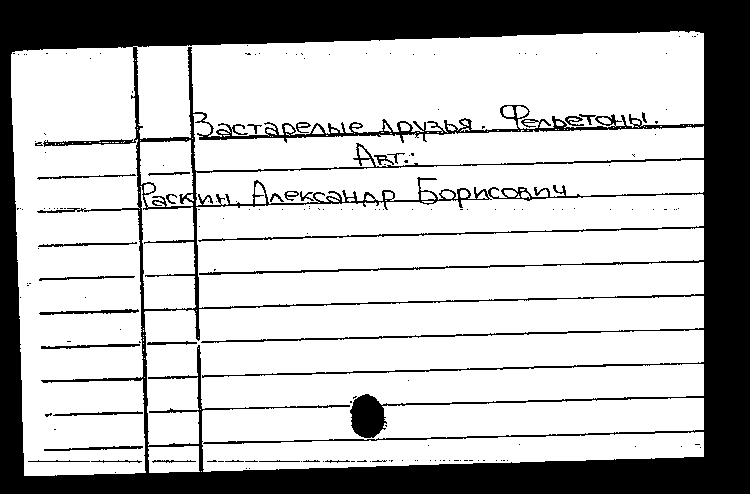 Застарелые друзья. Фельетоны.
Авт.:
Раскин, Александр Борисович.